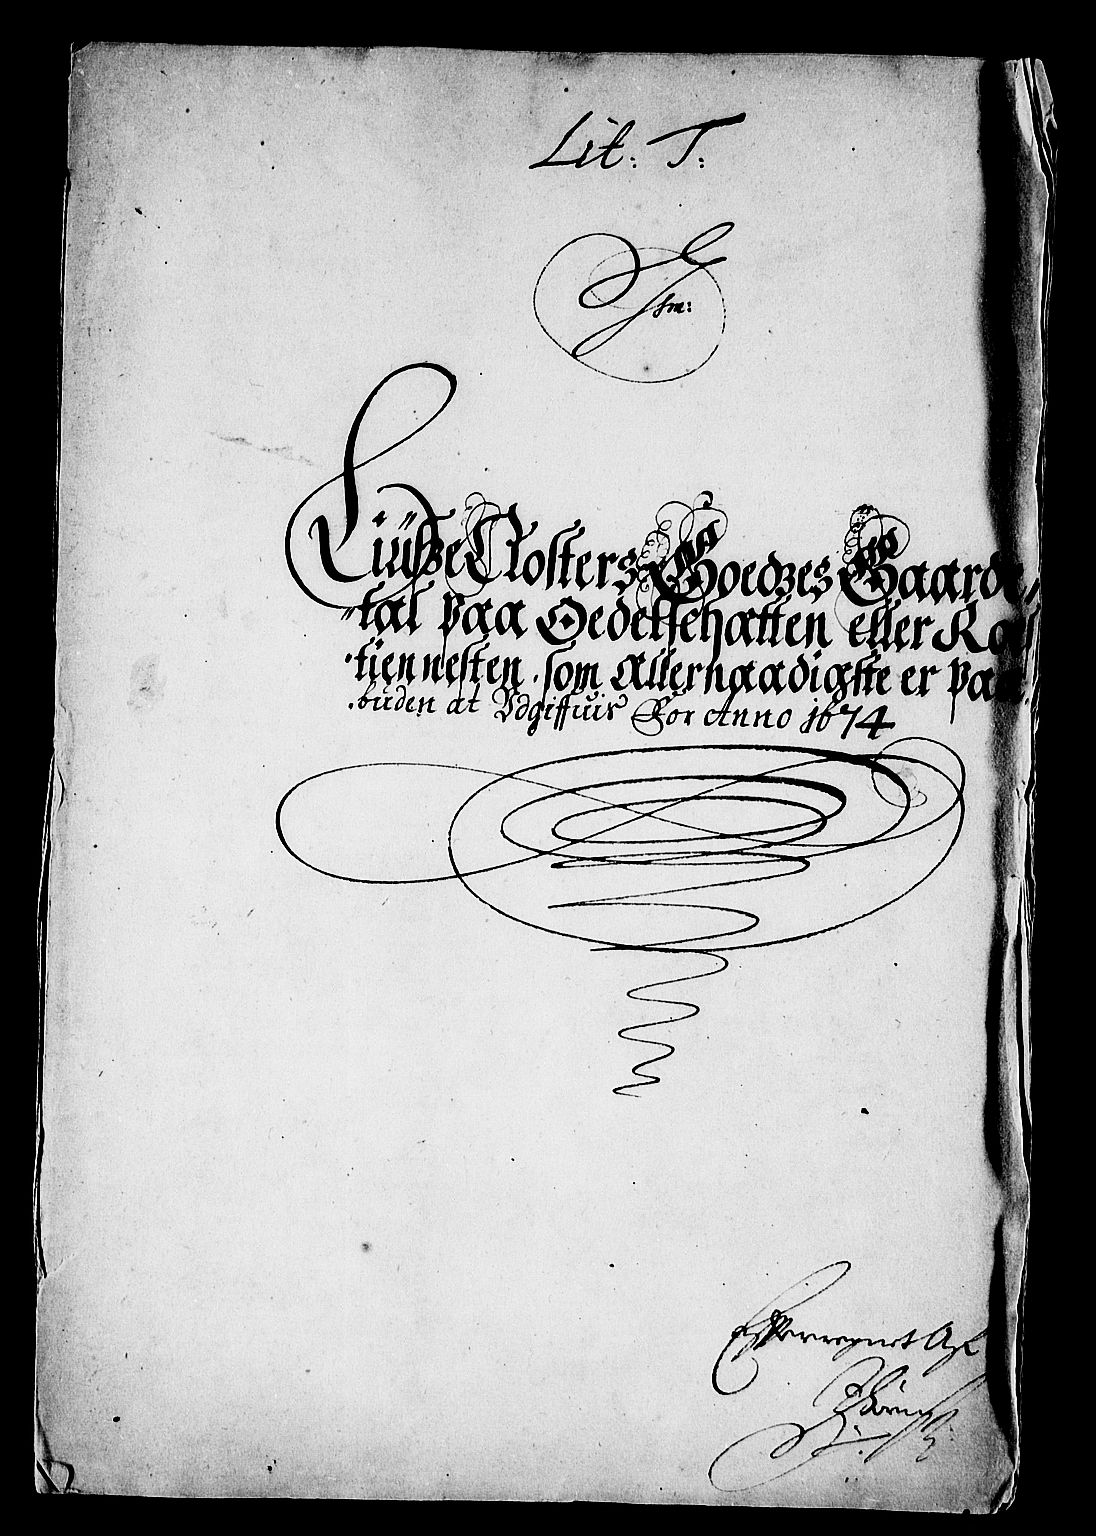 Lit: T:
Liüsse Closters Goedzes Gaarde
tal paa Oedelschatten eller Ko
tiennesten som Allernaadigste er paa
buden at Udgiffuis For Anno 1674
Efterregnet Af